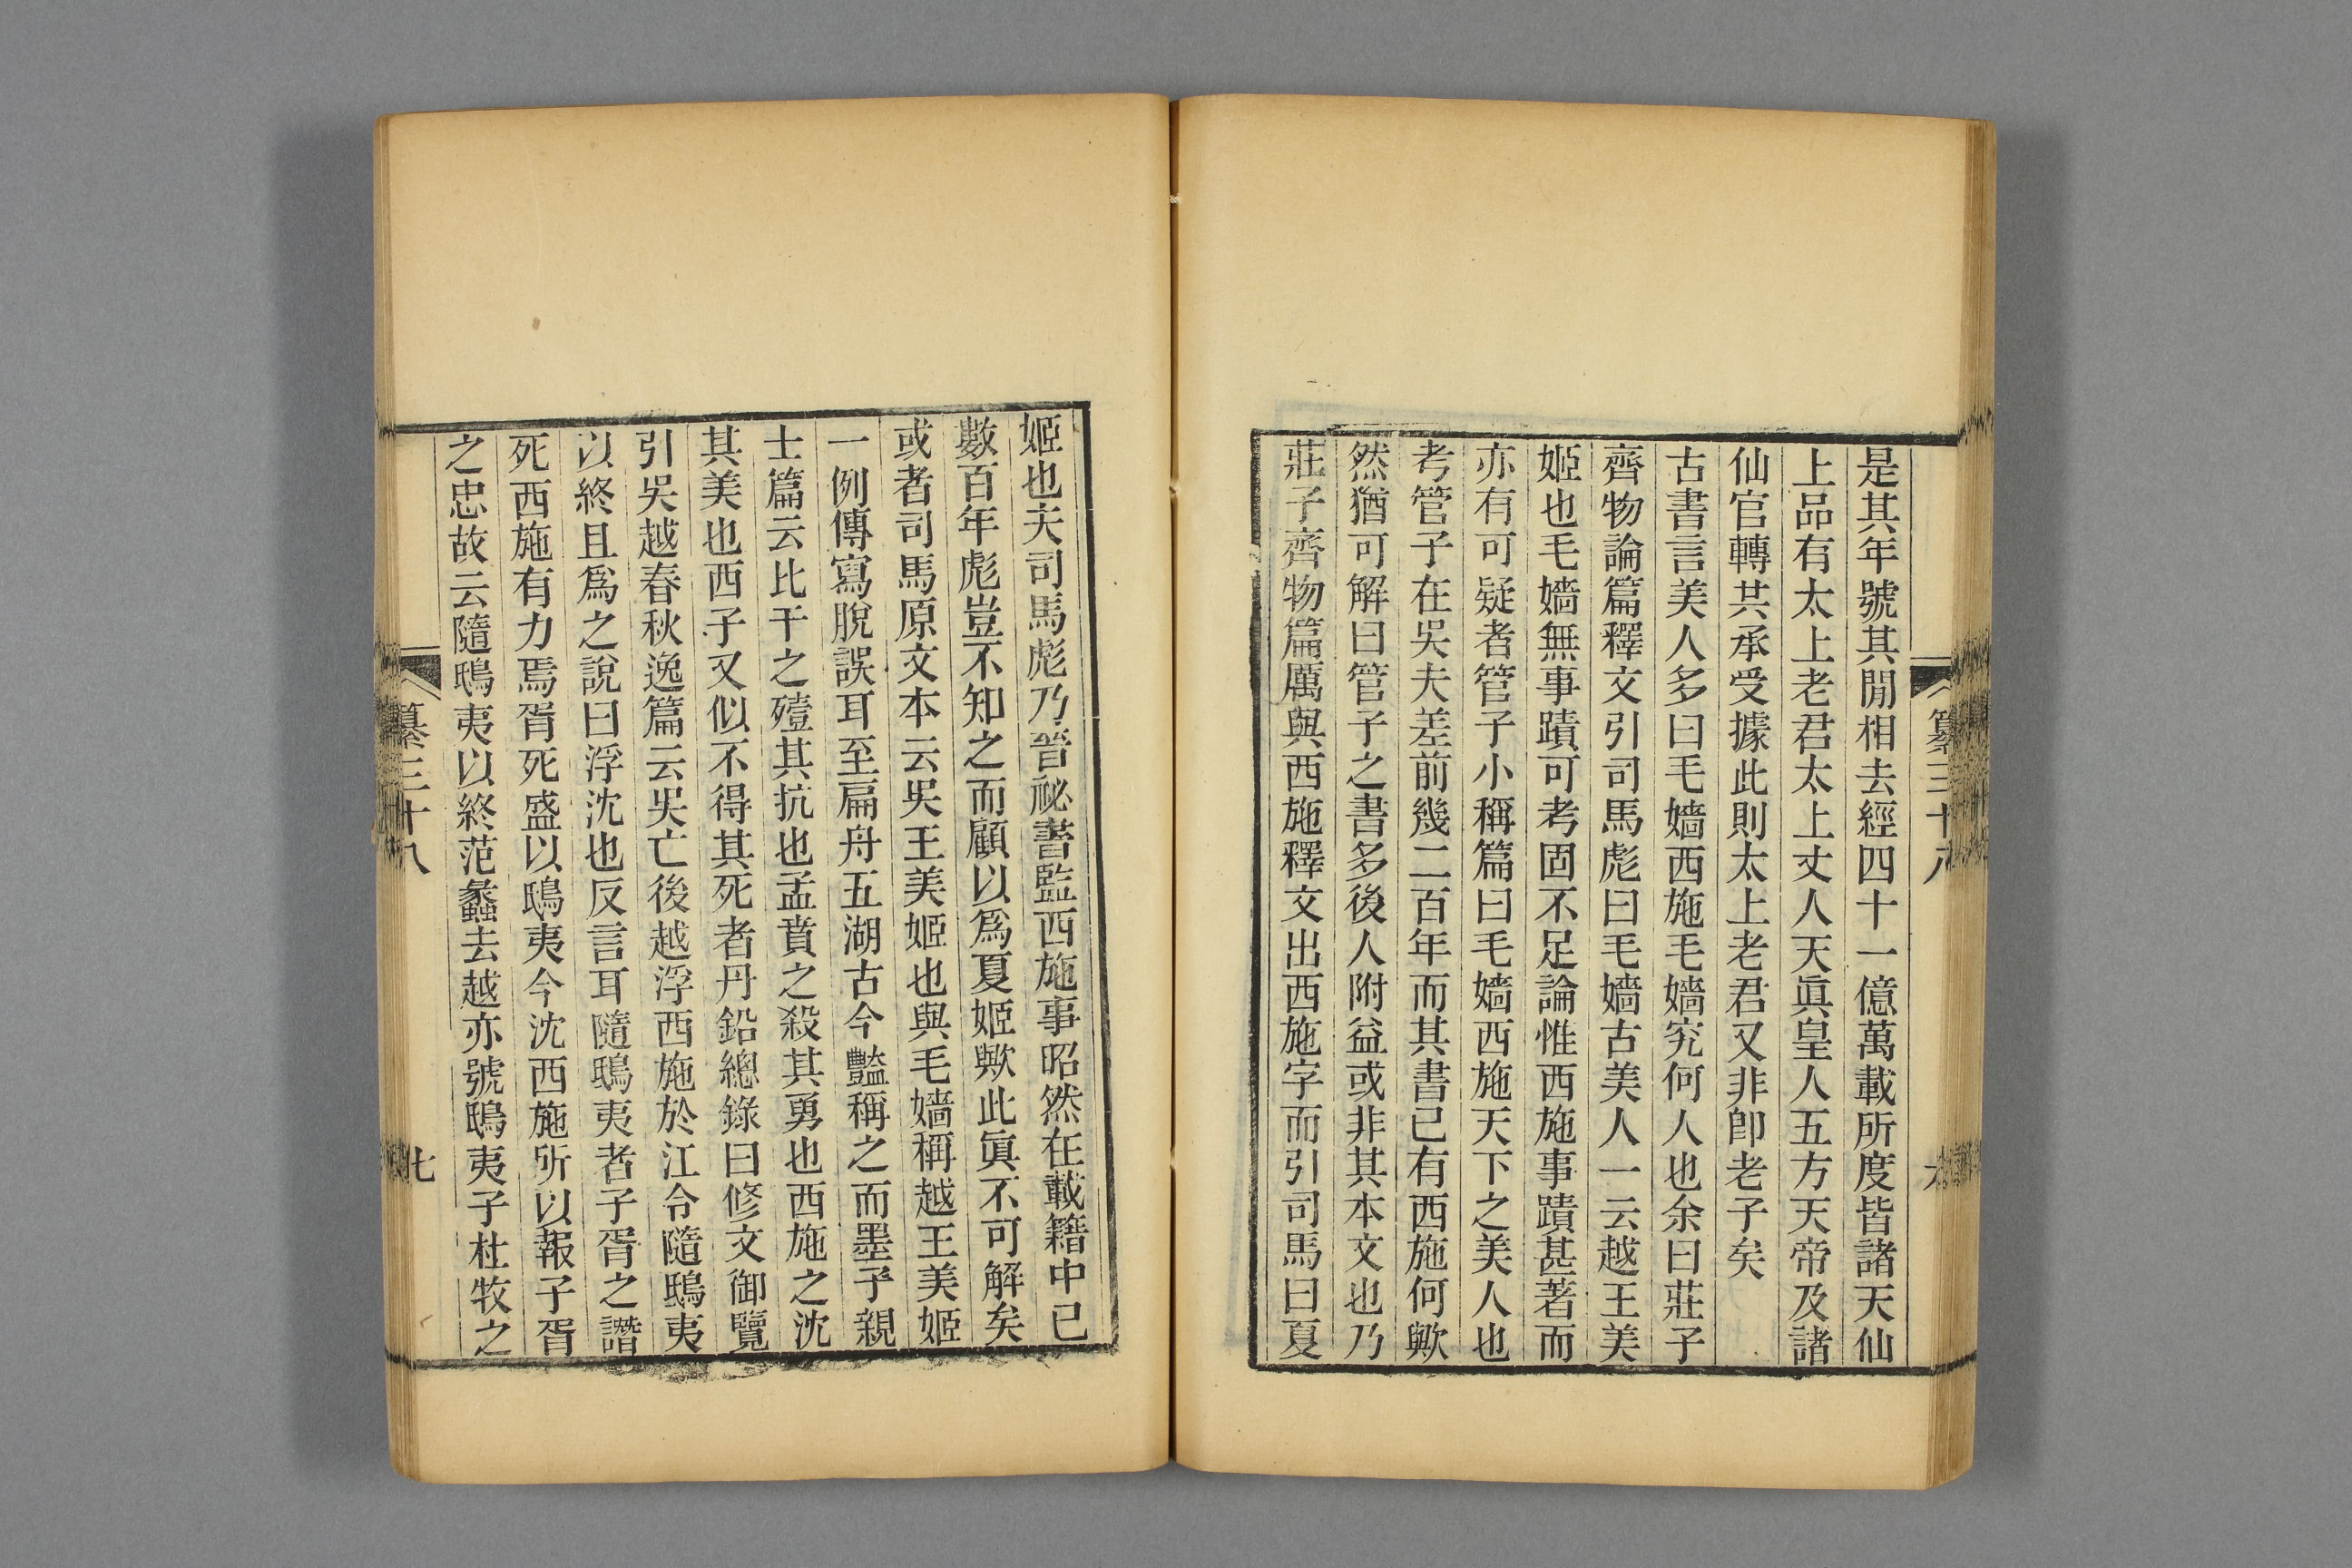 是其年號其閒相去經四十一億萬載所度皆諸天仙
上品有太上老君太上丈人天眞皇人五方天帝及諸
仙官轉共承受據此則太上老君又非卽老子矣
古書言美人多曰毛嬙西施毛嬙究何人也余曰莊子
齊物論篇釋文引司馬彪曰毛嬙古美人一云越王美
姬也毛嬙無事蹟可考固不足論惟西施事蹟甚著而
亦有可疑者管子小稱篇曰毛嬙西施天下之美人也
考管子在吳夫差前幾二百年而其書已有西施何歟
然猶可解曰管子之書多後人附益或非其本文也乃
莊子齊物篇厲與西施釋文出西施字而引司馬曰夏
纂三十八
六
姬也夫司馬彪乃晉祕書監西施事昭然在載籍中已
數百年彪豈不知之而顧以爲夏姬歟此眞不可解矣
或者司馬原文本云吳王美姬也與毛嬙稱越王美姬
一例傳寫脫誤耳至扁舟五湖古今豔稱之而墨子親
士篇云比干之殪其抗也孟賁之殺其勇也西施之沈
其美也西子又似不得其死者丹鉛總錄曰修文御覽
引吳越春秋逸篇云吳亡後越浮西施於江令隨鴟夷
以終且爲之說曰浮沈也反言耳隨鴟夷者子胥之譖
死西施有力焉胥死盛以鴟夷今沈西施所以報子胥
之忠故云隨鴟夷以終范蠡去越亦號鴟夷子杜牧之
纂三十八
七